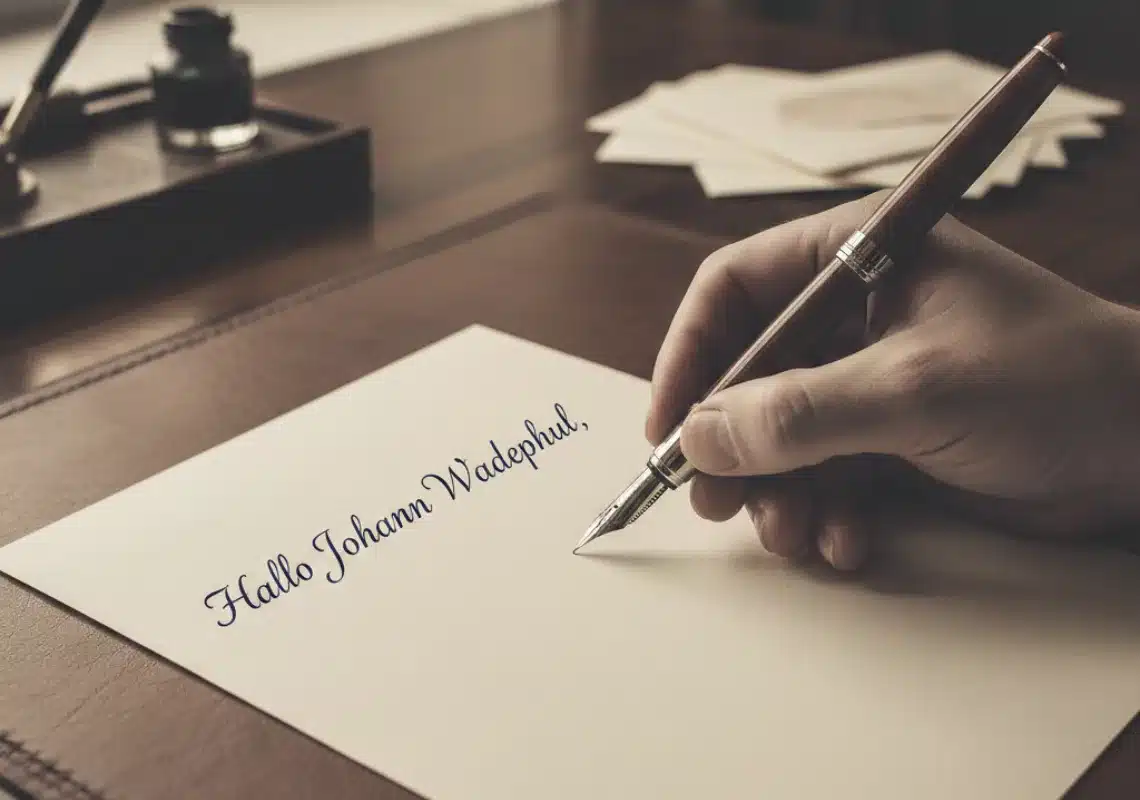 Hallo Johann Wadephul,